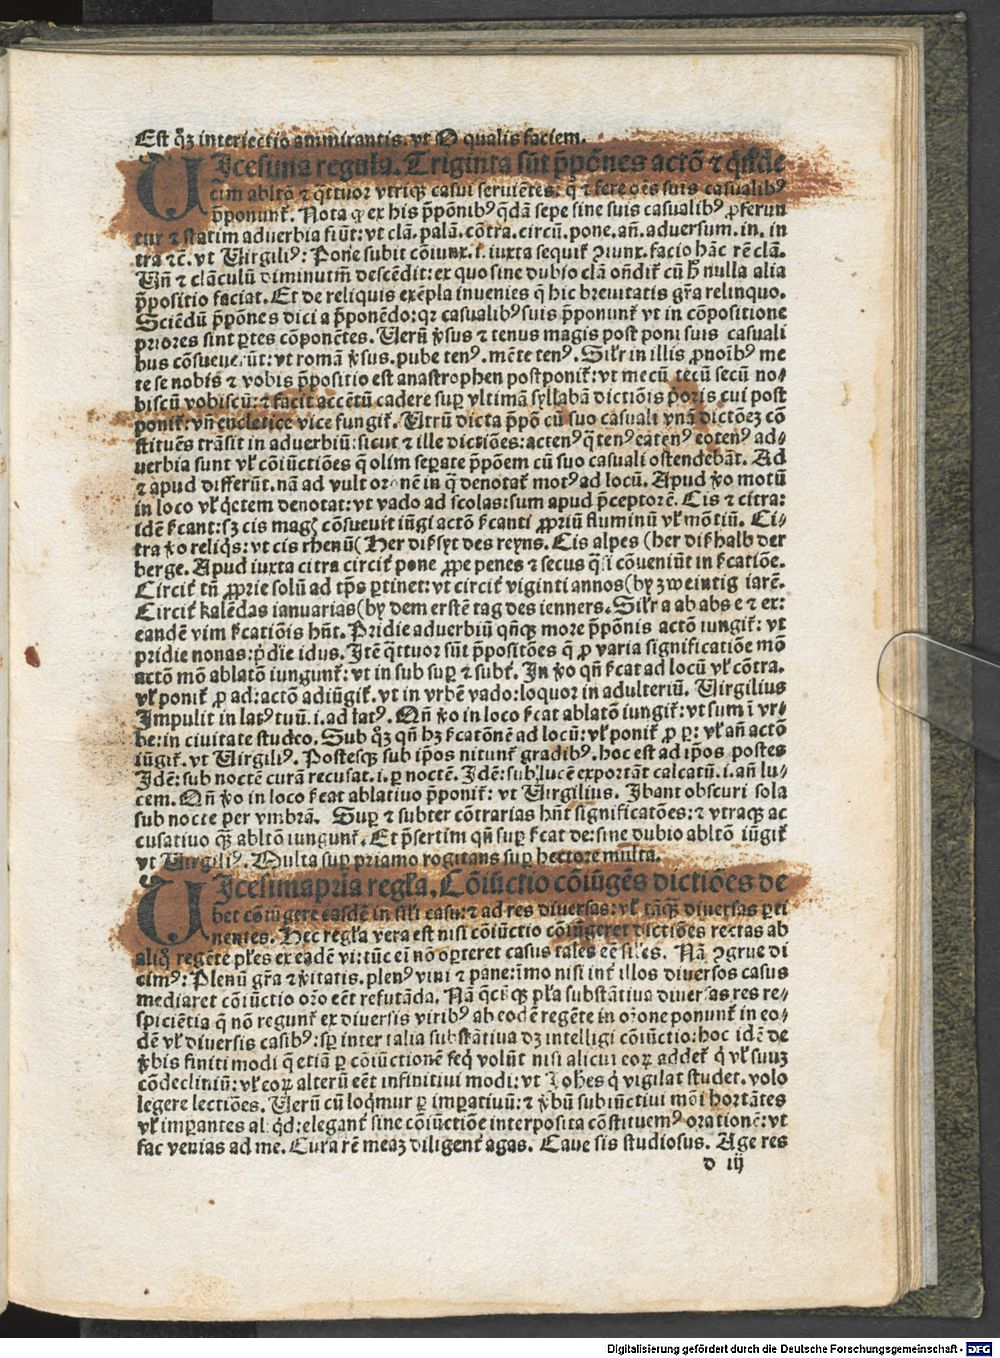 Est qͦꝫ interiectio ammirantis. vt O qualis faciem.
UIcesima regula. Triginta sūt p̄pōnes actō ⁊ q̄ndē
cim abltō ⁊ q̄ttuor vtriqꝫ casui seruiētes: q̄ ⁊ fere oēs suis casualibꝰ
p̄ponunt᷑. Nota ꝙ ex his p̄pōnibꝰ q̄dā sepe sine suis casualibꝰ ꝓferun
tur ⁊ statim aduerbia fiūt: vt clā. palā. cōtra. circū. pone. añ. aduersum. in. in
tra ⁊c̄. vt Virgiliꝰ: Pone subit cōiunx. i. iuxta sequit᷑ ꝯiunx. facio hāc rē clā.
Vñ ⁊ clāculū diminutiū descēdit: ex quo sine dubio clā oñdit᷑ cū h̄ nulla alia
p̄positio faciat. Et de reliquis exēpla inuenies q̄ hic breuitatis gr̄a relinquo.
Sciēdū p̄pōnes dici a p̄ponēdo: qꝛ casualibꝰ suis p̄ponunt᷑ vt in cōpositione
priores sint ꝑtes cōponētes. Verū ꝟsus ⁊ tenus magis post poni suis casuali
bus cōsueuerūt: vt romā ꝟsus. pube tenꝰ. mēte tenꝰ. Sil᷑r in illis ꝓnoīb me
te se nobis ⁊ vobis p̄positio est anastrophen postponit᷑: vt mecū tecū secū no⸗
biscū vobiscū: ⁊ facit accētū cadere suꝑ vltimā syllabā dictiōis p̄oris cui post
ponit᷑: vñ encletice vice fungit᷑. Vtrū dicta p̄pō cū suo casuali vnā dictōeꝫ cō
stituēs trāsit in aduerbiū: sicut ⁊ ille dictiōes: actenꝰ q̄tenꝰ eatenꝰ eotenꝰ ad⸗
uerbia sunt vl᷑ cōiūctiōes q̄ olim seꝑate p̄pōem cū suo casuali ostendebāt. Ad
⁊ apud differūt. nā ad vult orōnē in q̄ denotat᷑ motꝰ ad locū. Apud ꝟo motū
in loco vl᷑ q̄etem denotat: vt vado ad scolas: sum apud p̄ceptorē. Cis ⁊ citra:
idē s̄cant: sꝫ cis magꝭ cōsueuit iūgi actō s̄canti ꝓpriū fluminū vl᷑ mōtiū. Ci⸗
tra ꝟo reliq̄s: vt cis rhenū (Her dis͛yt des reyns. Cis alpes (her dis͛halb der
berge. Apud iuxta citra circit᷑ pone ꝓpe penes ⁊ secus q̄si cōueniūt in s̄catiōe.
Circit᷑ tñ ꝓprie solū ad tp̄s ꝑtinet: vt circit᷑ viginti annos (by zweintig iarē.
Circit᷑ kalēdas ianuarias (by dem erstē tag des ienners. Sil᷑r a ab abs e ⁊ ex:
eandē vim s̄catiōis hñt. Pridie aduerbiū qn̄qꝫ more p̄pōnis actō iungit᷑: vt
pridie nonas: p̄die idus. Itē q̄ttuor sūt p̄positōes q̄ ꝓ varia significatiōe mō
actō mō ablatō iungunt᷑: vt in sub suꝑ ⁊ subt᷑. In ꝟo qñ s̄cat ad locū vl᷑ cōtra.
vl᷑ ponit᷑ ꝓ ad: actō adiūgit᷑. vt in vrbē vado: loquor in adulteriū. Virgilius
Impulit in latꝰ tuū. i. ad latꝰ. Qñ ꝟo in loco s̄cat ablatō iungit᷑: vt sum ī vr⸗
be: in ciuitate studeo. Sub qͦꝫ qñ hꝫ s̄catōnē ad locū: vl᷑ ponit᷑ ꝓ ꝑ: vl᷑ añ actō
iūgit᷑. vt Virgiliꝰ. Postesqꝫ sub ip̄os nitunt᷑ gradibꝰ. hoc est ad ip̄os postes
Idē: sub noctē curā recusat. i. ꝑ noctē. Idē: sub lucē exportāt calcatū. i. añ lu⸗
cem. Qñ ꝟo in loco s̄cat ablatiuo p̄ponit᷑: vt Virgilius. Ibant obscuri sola
sub nocte per vmbrā. Suꝑ ⁊ subter cōtrarias hñt significatōes: ⁊ vtraqꝫ ac
cusatiuo qꝫ abltō iungunt᷑. Et p̄sertim qñ suꝑ s̄cat de: sine dubio abltō iūgit᷑
vt Virgiliꝰ. Multa suꝑ priamo rogitans suꝑ hectore multa.
UIcesimapr̄ia regl᷑a. Cōiūctio cōiūgēs dictiōes de
bet cōiūgere easdē in sil᷑i casu: ⁊ ad res diuersas: vl᷑ tāqꝫ diuersas ꝑti
nentes. Hec regl᷑a vera est nisi cōiūctio cōiūgeret dictiōes rectas ab
aliq̄ regēte pl᷑es ex eadē vi: tūc eī nō oꝑteret casus tales eē sil᷑es. Nā ꝯgrue di
cimꝰ: Plenū gr̄a ⁊ ꝟitatis. plenꝰ vini ⁊ pane: īmo nisi int᷑ illos diuersos casus
mediaret cōiūctio orō eēt refutāda. Nā q̄cūqꝫ pl᷑a substātiua diuersas res re⸗
spiciētia q̄ nō regunt᷑ ex diuersis viribꝰ ab eodē regēte in orōne ponunt᷑ in eo⸗
dē vl᷑ diuersis casibꝰ: sꝑ inter talia substātiua dꝫ intelligi cōiūctio: hoc idē de
ꝟbis finiti modi q̄ etiā ꝑ cōiūctionē seq̄ volūt nisi alicui eoꝝ addet᷑ q̄ vl᷑ suuꝫ
cōdecliniū: vl᷑ eoꝝ alterū eēt infinitiui modi: vt Iohēs q̄ vigilat studet. volo
legere lectiōes. Verū cū loq̄mur ꝑ imꝑatiuū: ⁊ ꝟbū subiūctiui mōi hortātes
vl᷑ imꝑantes al qͥd: elegant᷑ sine cōiūctiōe interposita cōstituemꝰ orationē: vt
fac venias ad me. Cura rē meaꝫ diligent᷑ agas. Caue sis studiosus. Age res
d iij
Digitalisierung gefördert durch die Deutsche Forschungsgemeinschaft - DFG